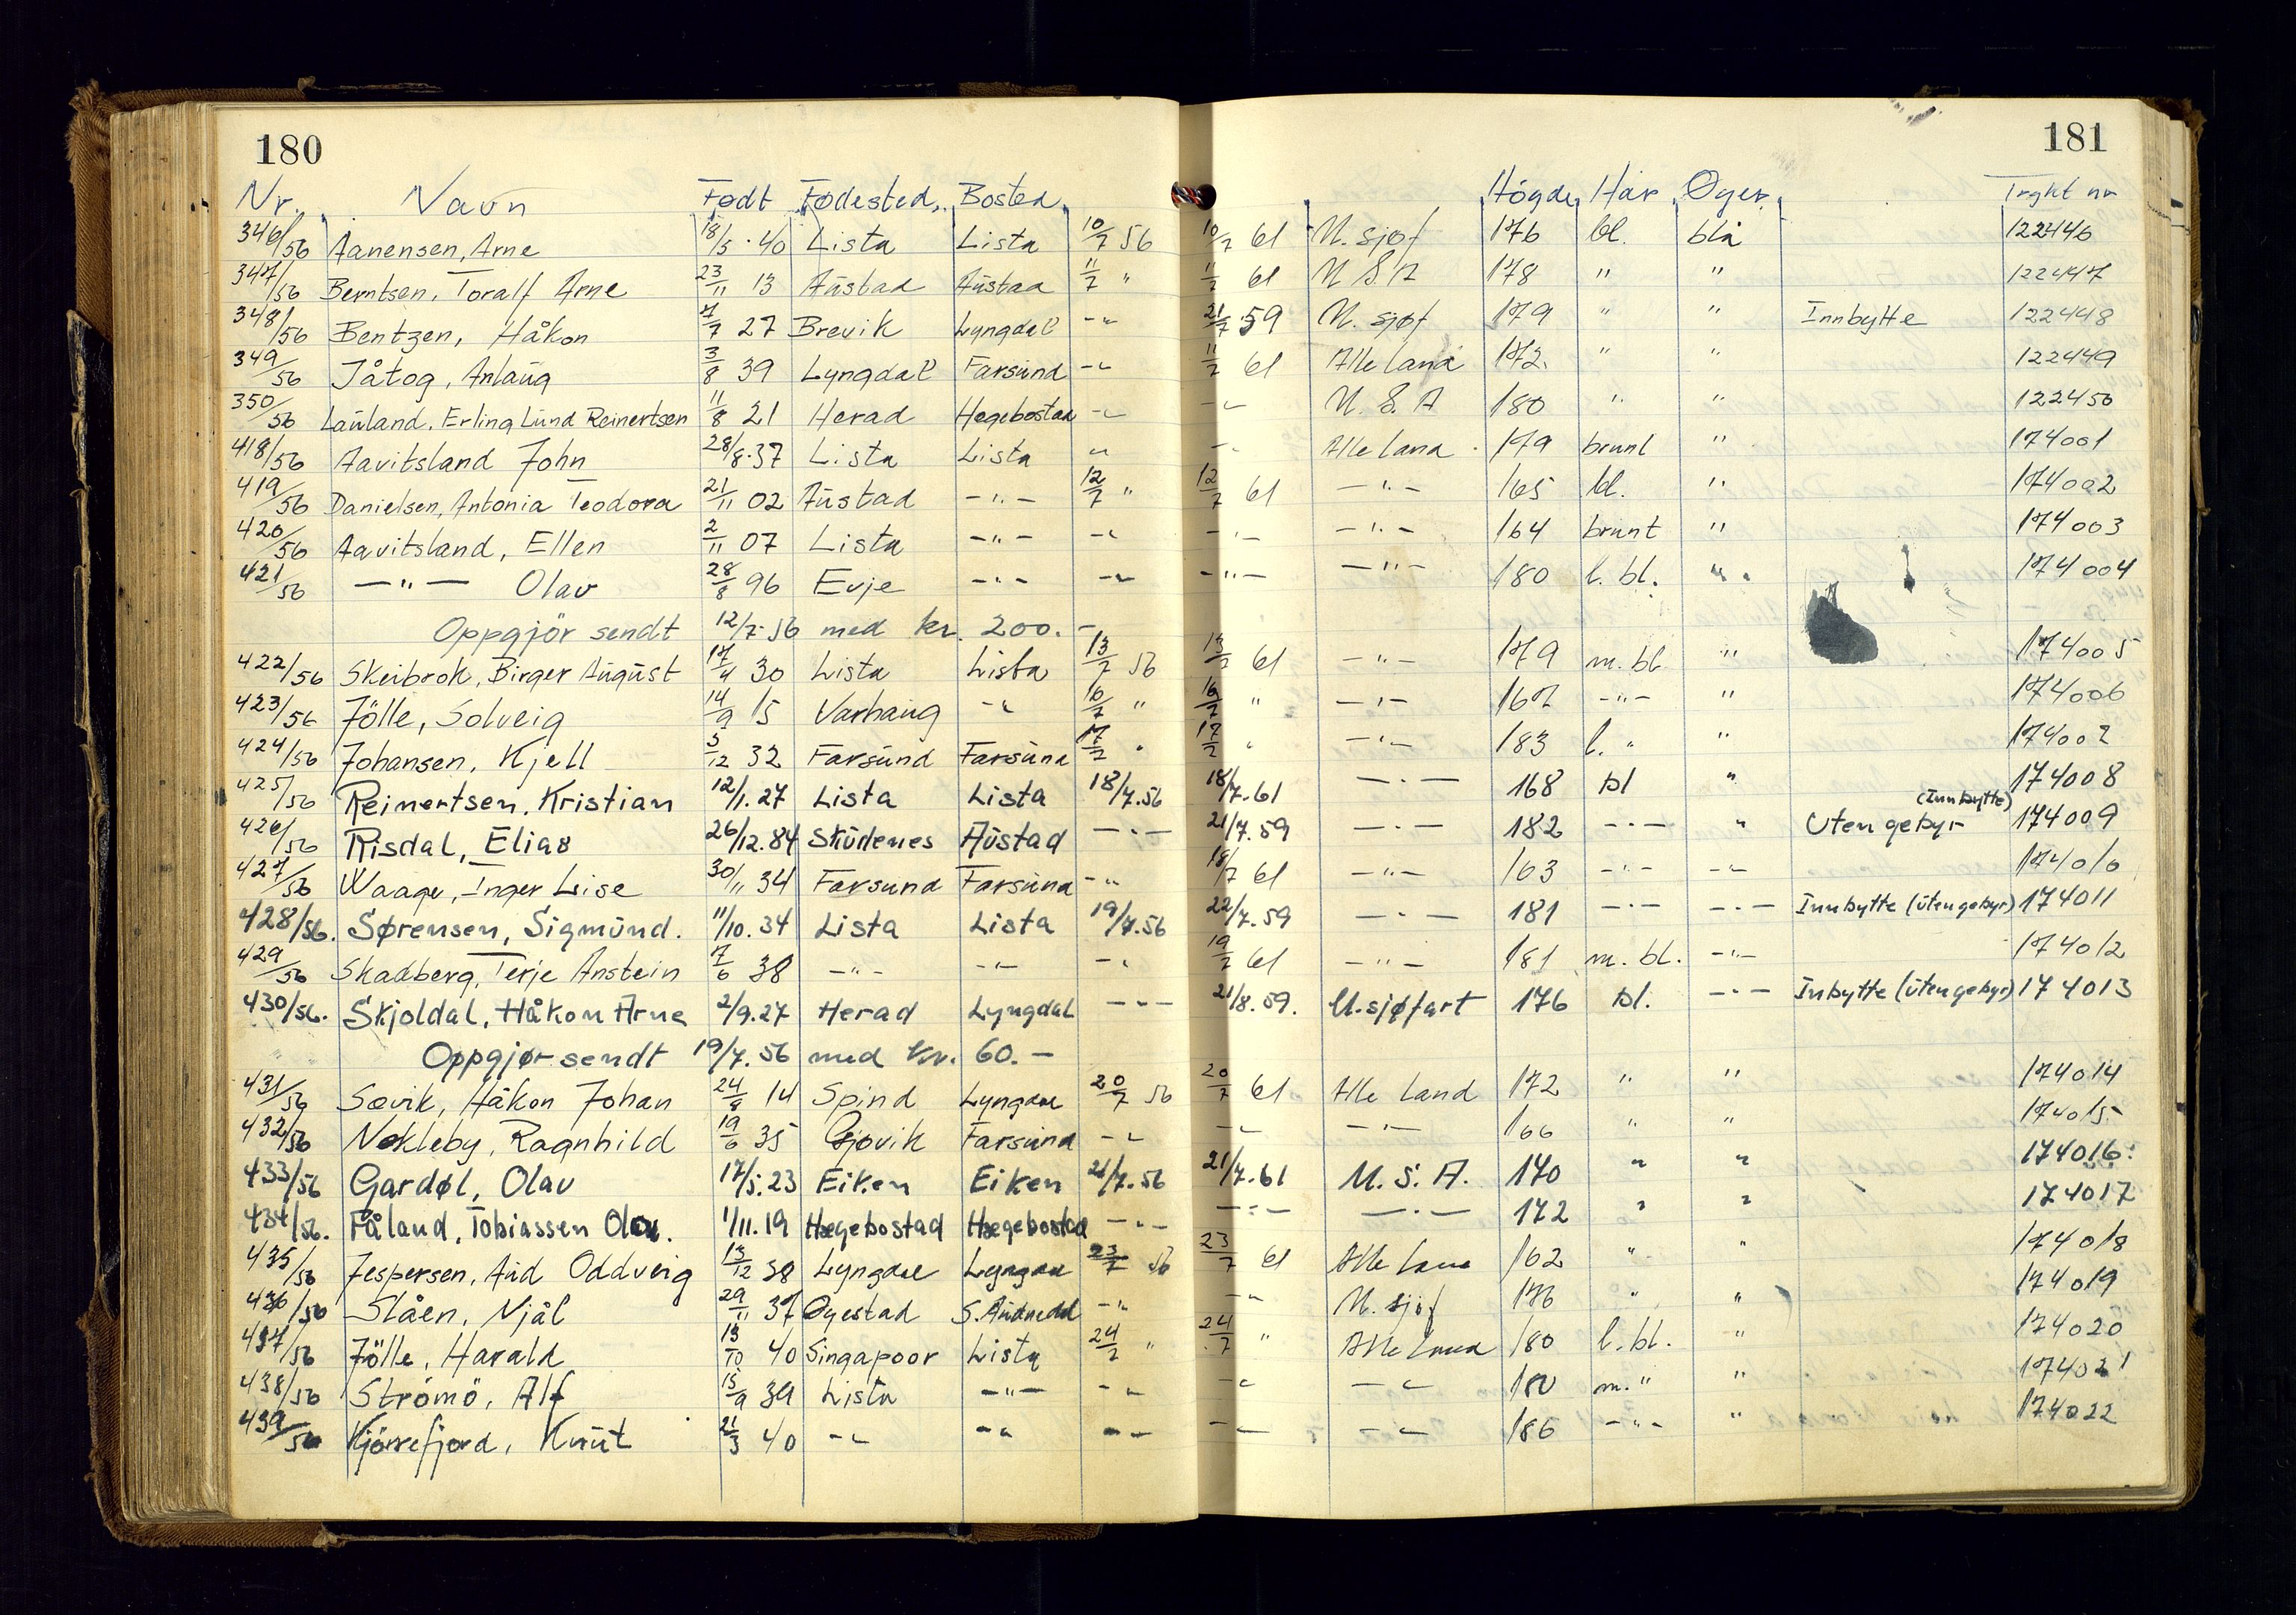 180
181
Nr. Navn Født Fødested. Bosted. Högde Hår Øyer Trykt nr
346/56 Aanensen, Arne 18/5.40 Lista Lista 10/7 56 10/7 61 U. sjøf 176 bl. blå 122446
347/56 Berntsen, Toralf Arne 23/11 13 Aüstad Aüstad 11/7 " 11/7 61 U S A 178 " " 122447
348/56 Bentzen, Håkon 7/7 27 Brevik Lyngdal -"- 21/7 59 U. sjøf 179 " " Innbytte 122448
349/56 Jåtog, Anlaüg 3/8 39 Lyngdal Farsünd -"- 11/7 61 Alle land 172. " " 122449
350/56 Laüland, Erling Lünd Reinertsen 11/8 21 Herad Hegebostad -"- -"- U. S. A 180 " " 122450
418/56 Aavitsland John 28/8.37 Lista Lista " -"- Alle land 179 brunt " 174001
419/56 Danielsen, Antonia Teodora 21/11 02 Aüstad -"- 12/7 " 12/7 61 -"- 165 bl. " 174002
420/56 Aavitsland, Ellen 2/11 07 Lista -"- -"- -"- -"- 164 brünt " 174003
421/56 -"- Olav 28/8 96 Evje -"- -"- -"- -"- 180 l. bl. " 174004
Oppgjör sendt 12/7-56 med kr. 200.-
422/56 Skeibrok, Birger Aügüst 17/4 30 Lista Lista 13/7 56 13/7 61 -"- 179 m. bl " 174005
423/56 Jölle, Solveig 14/9 15 Varhaug -"- 16/7 " 16/7 " -"- 167 -"- " 174006
424/56 Johansen, Kjell 5/12 32 Farsünd Farsünd 17/7 " 17/7 " -"- 183 l. " " 174007
425/56 Reinertsen, Kristian 12/1.27 Lista Lista 18/7.56 18/7.61 -"- 168 bl " 174008
426/56 Risdal, Elias 26/12.84 Sküdenes Aüstad -"- 21/7.59 -"- 182 -"- " Uten gebyr (Innbytte) 174009
427/56 Waage, Inger Lise 30/11 34 Farsund Farsünd -"- 18/7 61 -"- 163 -"- -"- 174010
428/56. Sørensen, Sigmünd. 11/10.34 Lista Lista 19/7.56 22/7.59 -"- 181 -"- -"- Innbytte (üten gebyr) 174011
429/56 Skadberg, Terje Anstein 7/6 38 -"- -"- -"- 19/7 61 -"- 181 m. bl. -"- 174012
430/56. Skjoldal, Håkon Arne 2/9.27 Herad Lyngdal -"- 21/8.59. U.sjøfart 176 bl. -"- Inbytte (üten gebyr) 174013
Oppgjør sendt 19/7.56 med kr. 60.-
431/56 Sævik, Håkon Johan 24/8 14 Spind Lyngdal 20/7 56 20/7 61 Alle land 172 " " 174014
432/56 Nøkleby, Ragnhild 19/6 35 Gjøvik Farsünd -"- -"- -"- 166 " " 174015
433/56 Gardøl, Olav 17/5.23 Eiken Eiken 21/7.56 21/7.61 U. S. A. 170 " " 174016
434/56. Fåland, Tobiassen Olav. 1/11.19 Hægebostad Hægebostad -"- -"- -"- 172 " " 174017
435/56 Jespersen, Aüd Oddveig 13/12 38 Lyngdal Lyngdal 23/7 56 23/7 61 Alle land 162 " " 174018
436/56 Slåen, Njål 29/11 37 Øyestad S. Aüdnedal -"- -"- U. sjöf 176 " " 174019
437/56 Jölle, Harald 13/10 40 Singapoor Lista 24/7 " 24/7 " Alle land 180 l. bl. " 174020
438/56 Strömö, Alf 15/9 39 Lista -"- -"- -"- -"- 180 m. " " 174021
439/56 Kjörrefjord, Knüt 21/3 40 -"- -"- -"- -"- -"- 186 -"- " 174022